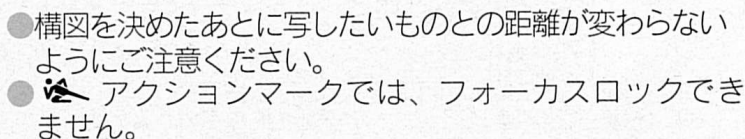 ●構図を決めたあとに写したいものとの距離が変わらない
ようにご注意ください。
● アクションマークでは、フォーカスロックでき
ません。